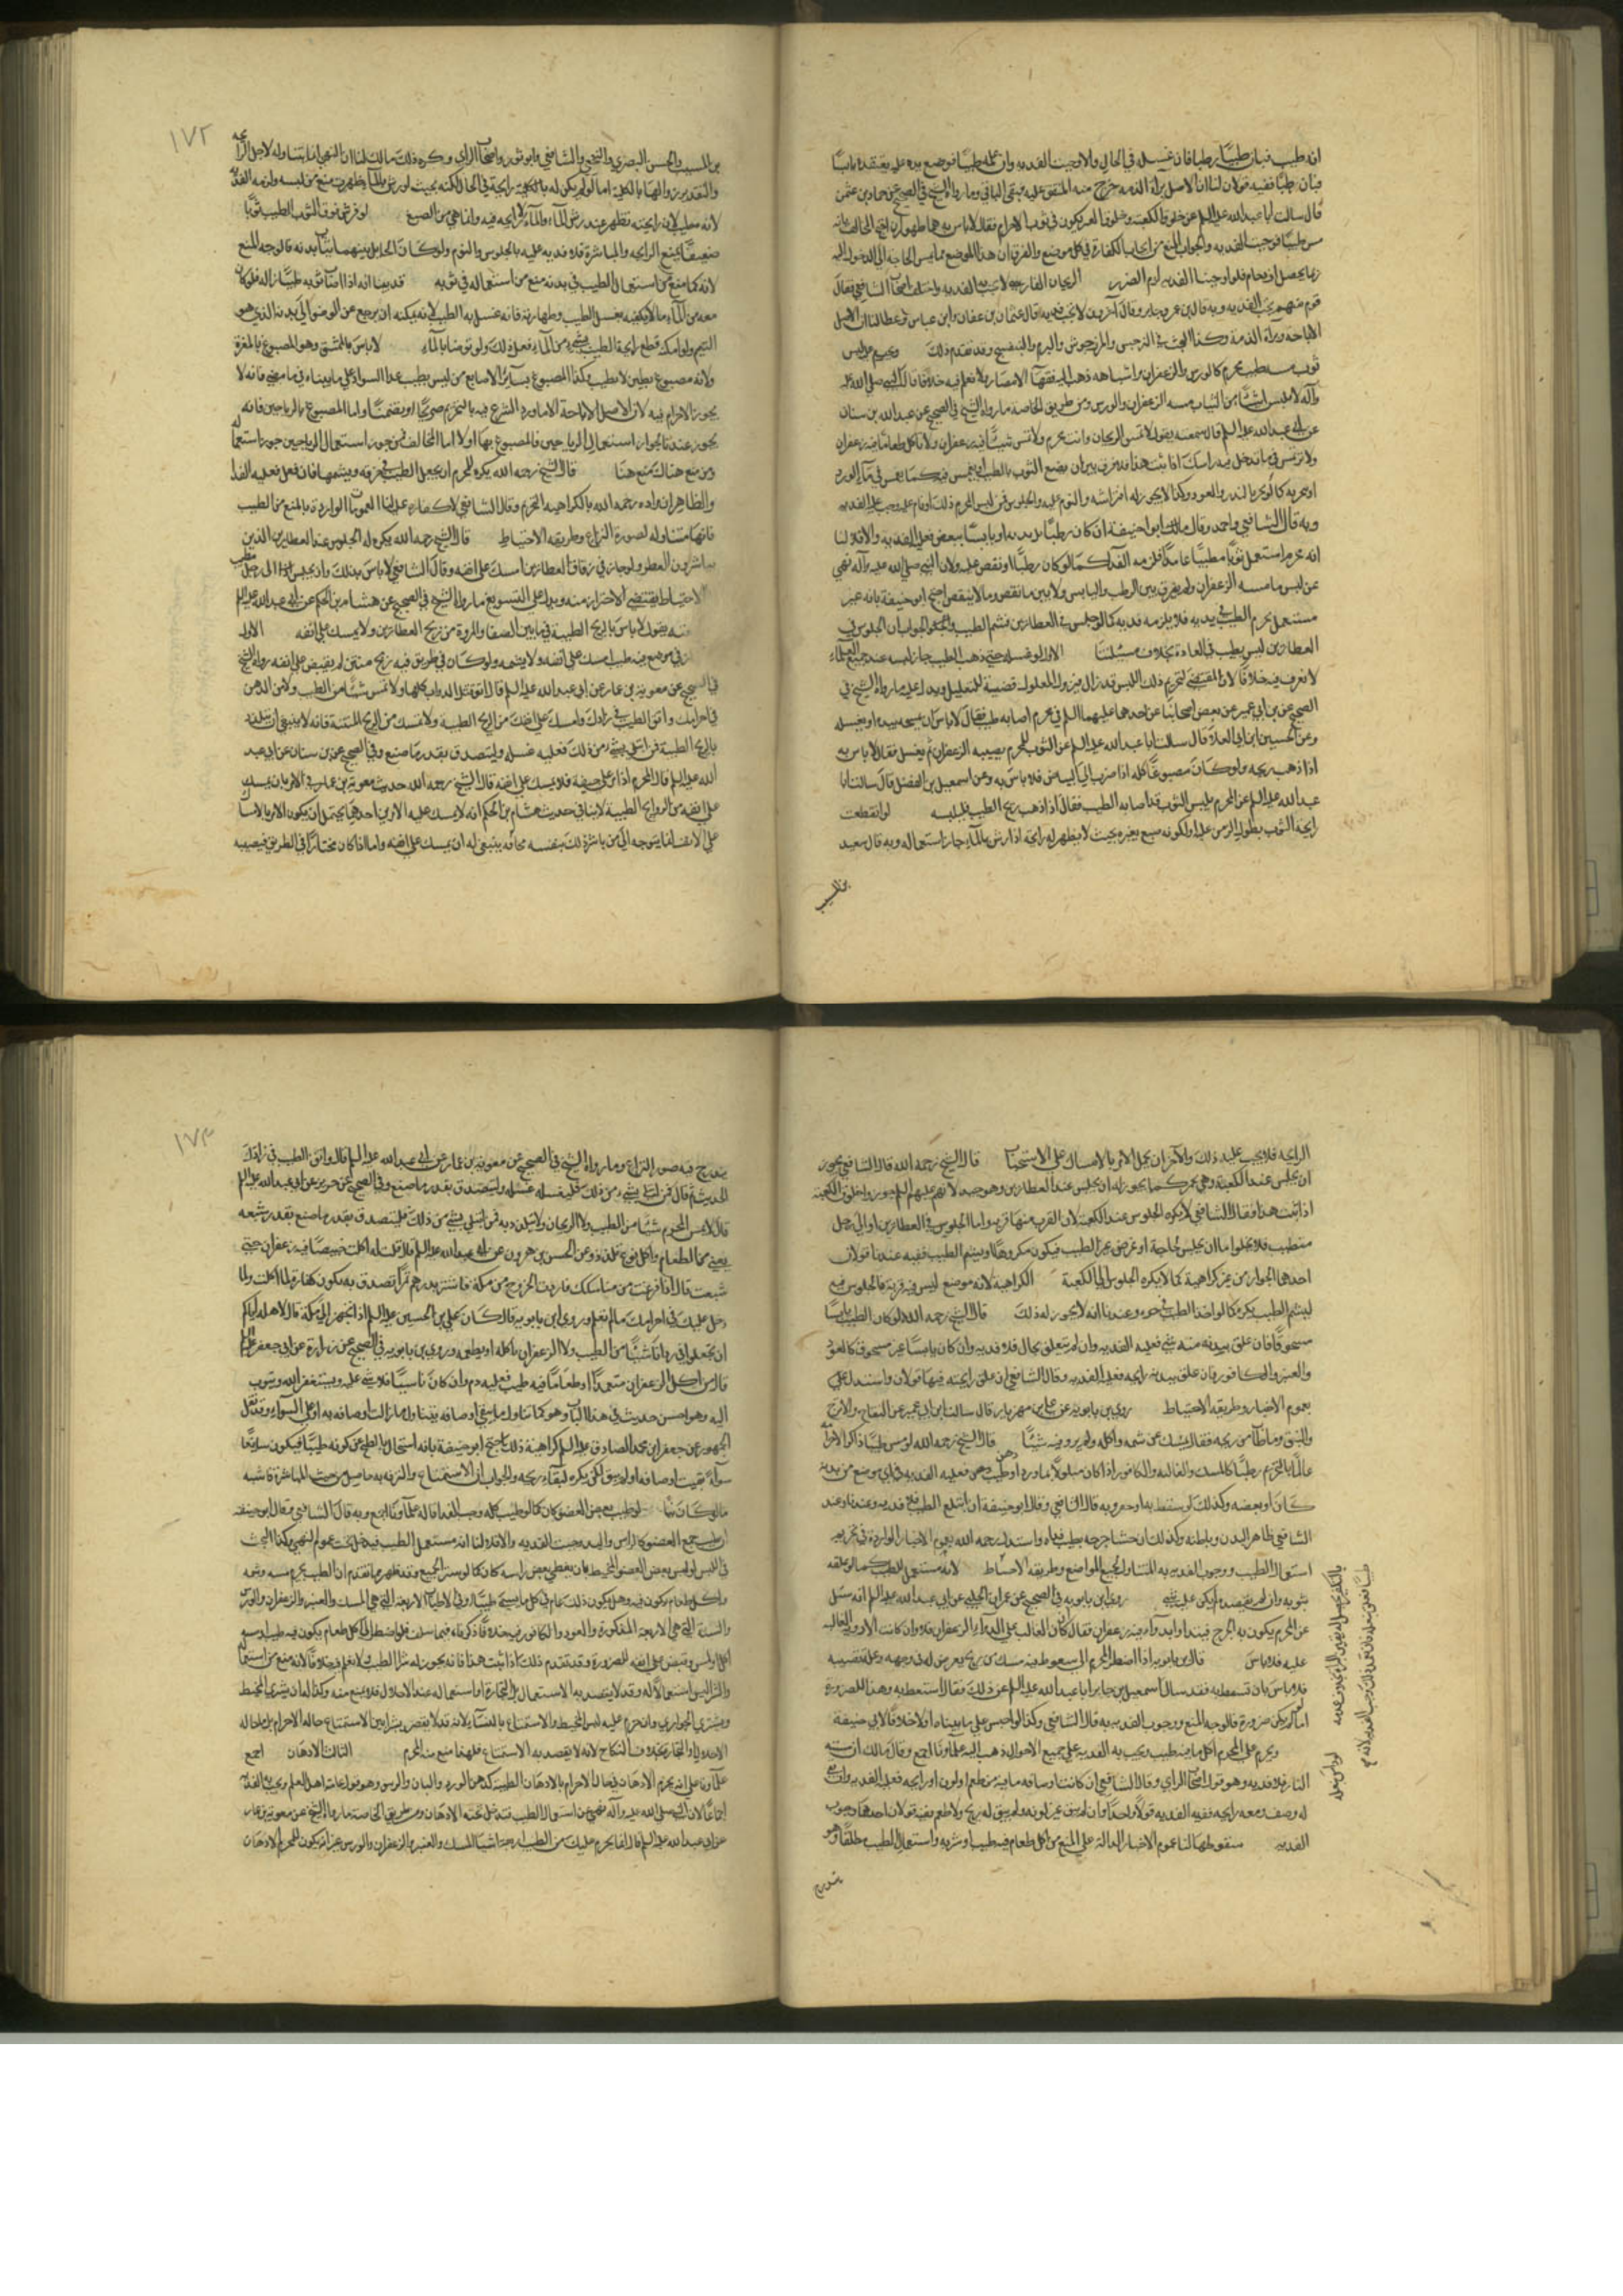 انه طيب فبان طيبا رطبا فان غسله في الحال والا وجبت الفدية وان علمه طيبا فوضع يده عليه يعتقده يابسا
فبان رطبا ففيه قولان لنا ان الاصل براءة الذمة خرج منه المتفق عليه فبقي الباقي وما رواه الشيخ في الصحيح عن حماد بن عثمن
قال سالت ابا عبد الله عليه السلم عن خلوق الكعبة وخلوق القبر يكون في ثوب الاحرام فقال لا باس به هما طهوران احتج المخالف بانه
مس طيبا فوجبت الفدية والجواب المنع من ايجاب الكفارة في كل موضع والفرق ان هذا الموضع مما يمس الحاجة الى الدخول اليه
ربما يحصل ازدحام فلو اوجبنا الفدية لزم الضرر الريحان الفارسي لا تجب به الفدية واختلف اصحاب الشافعي فقال
قوم منهم يجب الفدية وبه قال بن عمر وجابر وقال آخرون لا تجب فدية قال عثمان بن عفان وابن عباس وعطا لنا ان الاصل
الاباحة وبراءة الذمة وكذا البحث في النرجس والمرزجوش والبرم والبنفسج وقد تقدم ذلك ويحرم عليه لبس
ثوب مسه طيب محرم كالورس والزعفران واشباهه ذهب اليه فقهاء الامصار ولا نعلم فيه خلافا قال النبي صلى الله عليه
وآله لا تلبس شيئا من الثياب مسه الزعفران والورس ومن طريق الخاصة ما رواه الشيخ في الصحيح عن عبد الله بن سنان
عن ابي عبد الله عليه السلم قال سمعته يقول لا تمس الريحان وانت محرم ولا تمس شيئا فيه زعفران ولا تاكل طعاما فيه زعفران
ولا ترتمس في ماء تدخل فيه راسك اذا ثبت هذا فلا فرق بين ان يصبغ الثوب بالطيب او يغمس فيه كما يغمس في ماء الورد
او يبخر به كالمبخر بالند والعود وكذا لا يجوز له افتراشه والنوم عليه والجلوس فمن لبس المحرم ذلك او نام عليه وجب عليه الفدية
وبه قال الشافعي واحمد وقال مالك ابو حنيفة ان كان رطبا يلي بدنه او يابسا ينفض فعليه الفدية والا فلا لنا
انه محرم استعمل ثوبا مطيبا عامدا فلزمه الفداء كما لو كان رطبا او نفض عليه ولان النبي صلى الله عليه وآله نهى
عن لبس ما مسه الزعفران ولم يفرق بين الرطب واليابس ولا بين ما نفض وما لا ينفض احتج ابو حنيفة بانه غير
مستعمل لجرم الطيب في بدنه فلا يلزمه فدية كما لو جلس في العطارين فشم الطيب والجواب ان الجلوس في
العطارين ليس بطيب في العادة بخلاف مسئلتنا الاول لو غسله حتى ذهب الطيب جاز لبسه عند جميع العلماء
لا نعرف فيه خلافا لان المقتضي لتحريم ذلك اللبس قد زال فيزول المعلول قضية للتعليل ويدل عليه ما رواه الشيخ في
الصحيح عن بن ابي عمير عن بعض اصحابنا عن احدهما عليهما السلم في محرم اصابه طيب فقال لا باس ان يمسحه بيده او يغسله
وعن الحسين ابن ابي العلا قال سالت ابا عبد الله عليه السلم عن الثوب للمحرم يصيبه الزعفران ثم يغسل فقال لا باس به
اذا ذهب ريحه ولو كان مصبوغا كله اذا ضرب الى البياض فلا باس به وعن اسمعيل بن الفضل قال سالت ابا
عبد الله عليه السلم عن المحرم يلبس الثوب قد اصابه الطيب فقال اذا ذهب ريح الطيب فليلبسه لو انقطعت
رايحة الثوب بطول الزمن عليه او لكونه صبغ بغيره بحيث لا يظهر له رايحة اذا رش بالماء جاز استعماله وبه قال سعيد
بن المسيب
١٧٢
بن المسيب والحسن البصري والنخعي والشافعي وابو ثور واصحاب الراي وكره ذلك مالك لنا ان النهي انما يتناوله لاجل الرايحة
والتقدير زوالها بالكلية اما لو لم يكن له بالكلية رايحة في الحال لكنه بحيث لو رش بالماء ظهرت منع من لبسه ولزمه الفدية
لانه مطيب لان رايحته تظهر عند رش الماء والماء لا رايحة فيه وانما هي من الصبغ لو فرش فوق الثوب الطيب ثوبا
صفيقا يمنع الرايحة والمباشرة فلا فدية عليه بالجلوس والنوم ولو كان الحايل بينهما ثياب بدنه فالوجه المنع
لانه كما منع من استعمال الطيب في بدنه منع من استعماله في ثوبه قد بينا انه اذا اصاب ثوبه طيب ازاله فلو كان
معه من الماء ما لا يكفيه لغسل الطيب وطهارته فانه غسل به الطيب لانه يمكنه ان يرجع عن الوضوء الى بدله الذي هو
التيمم ولو امكنه قطع رايحة الطيب بشيء من الماء فعل ذلك ولو توضا بالماء لا باس بالممشق وهو المصبوغ بالمغرة
ولانه مصبوغ بطين لا بطيب وكذا المصبوغ بساير الاصابيغ من ليس بطيب عدا السواد على ما بيناه في ما مضى فانه لا
يجوز الاحرام فيه لان الاصل الاباحة الا ما ورد الشرع فيه بالتحريم صريحا او تضمنا واما المصبوغ بالرياحين فانه
يجوز عند من يجوز له استعمال الرياحين فالمصبوغ بها اولا اما المخالف فمن جوز استعمال الرياحين جوز استعماله
ومن منع هناك منع هنا قال الشيخ رحمه الله يكره للمحرم ان يجعل الطيب في خرقة ويشمها فان فعل فعليه الفداء
والظاهر ان مراده رحمه الله بالكراهية التحريم وقال الشافعي لا كفارة عليه لنا العمومات الواردة بالمنع من الطيب
فانها متناولة لصورة النزاع وطريقة الاحتياط قال الشيخ رحمه الله يكره له الجلوس عند العطارين الذين
يباشرون العطر ولو جاز في زقاق العطارين امسك على انفه وقال الشافعي لا باس بذلك وان يجلس الى رجل متطيب
لنا ان الاحتياط يقتضي الاحتراز منه ويدل على التسويغ ما رواه الشيخ في الصحيح عن هشام بن الحكم عن ابي عبد الله عليه السلم
سمعته يقول لا باس بالريح الطيبة فيما بين الصفا والمروة من ريح العطارين ولا يمسك على انفه الاول
لو جاز في موضع فيه طيب امسك على انفه ولا يشمه ولو كان في طريق فيه ريح منتن لم يقبض على انفه رواه الشيخ
في الصحيح عن معوية بن عمار عن ابي عبد الله عليه السلم قال اتق قتل الدواب كلها ولا تمس شيئا من الطيب ولا من الدهن
في احرامك واتق الطيب في زادك وامسك على انفك من الريح الطيبة ولا تمسك من الريح المنتنة فانه لا ينبغي ان يتلذذ
بالريح الطيبة فمن ابتلي بشيء من ذلك فعليه غسله وليتصدق بقدر ما صنع وفي الصحيح عن بن سنان عن ابي عبد
الله عليه السلم قال المحرم اذا مر على جيفة فلا يمسك على انفه قال الشيخ رحمه الله حديث معوية بن عمار في الامر بان يمسك
على انفه من الروايح الطيبة لا ينافي حديث هشام بن الحكم انه لا يمسك عليه لامرين احدهما يحتمل ان يكون الامر بالامساك
على الانف انما يتوجه الى من باشر ذلك بنفسه فانه ينبغي له ان يمسك على انفه واما اذا كان مجتازا في الطريق فيصيبه
الرايحة فلا يجب عليه ذلك والآخر ان يحمل الامر بالامساك على الاستحباب قال الشيخ رحمه الله قال الشافعي يجوز
ان يجلس عند الكعبة وهي تجمر كما يجوز له ان يجلس عند العطارين وهو جيد لانهم عليهم السلم جوزوا خلوق الكعبة
اذا ثبت هذا فقال الشافعي لا يكره الجلوس عند الكعبة لان القرب منها قربة واما الجلوس في العطارين او الى رجل
متطيب فلا يخلوا اما ان يجلس لحاجة او غرض غير الطيب فيكون مكروها او يشم الطيب ففيه عندنا قولان
احدهما الجواز من غير كراهية كما لا يكره الجلوس الى الكعبة الكراهية لانه موضع ليس فيه قربة فالجلوس فيه
ليشم الطيب يكره كما لو اخذ الطيب في خرقة وعندنا انه لا يجوز له ذلك قال الشيخ رحمه الله لو كان الطيب يابسا
مسحوقا فان علق ببدنه منه شيء فعليه الفدية وان لم يتعلق بحال فلا فدية وان كان يابسا غير مسحوق كالعود
والعنبر والكافور فان علق ببدنه رايحة فعليه الفدية وقال الشافعي ان علق رايحته فيها قولان واستدل على
بعموم الاخبار وطريقة الاحتياط روى بن بابويه عن علي بن مهزيار قال سالت ابن ابي عمير عن التفاح والاترج
والنبق وما طاب من ريحه فقال يمسك عن شمه واكله ولم يرو فيه شيئا قال الشيخ رحمه الله لو مس طيبا ذاكرا لاحرامه
عالما بالتحريم رطبا كالمسك والغالية والكافور اذا كان مبلولا بماء ورد او دهن طيب فعليه الفدية في اي موضع من بدنه
كان او بعضه وكذلك لو سعط به او حقن به وبه قال الشافعي وقال ابو حنيفة ان ابتلع الطيب فلا فدية وعندنا وعند
الشافعي ظاهر البدن وباطنه وكذلك ان حشا جرحه بطيب فداه واستدل رحمه الله بعموم الاخبار الواردة في تحريم
استعمال الطيب ووجوب الفدية به المتناول لجميع المواضع وطريقة الاحتياط لانه مستعمل للطيب كما لو علقه
بثوبه وان لم يقصد لم يكن عليه شيء روى ابن بابويه في الصحيح عن عمران الحلبي عن ابي عبد الله عليه السلم انه سئل
عن المحرم يكون به الجرح فيتداوى بدواء فيه زعفران فقال ان كان الغالب على الدواء الزعفران فلا وان كانت الادوية الغالبة
عليه فلا باس قال بن بابويه اذا اضطر المحرم الى سعوط فيه مسك من ريح يعرض له في وجهه وعلة تصيبه
فلا باس بان يستعط به فقد سال اسمعيل بن جابر ابا عبد الله عليه السلم عن ذلك فقال استعط به وهذا للضرورة
اما لو لم يكن ضرورة فالوجه المنع ووجوب الفدية به قال الشافعي وكذا لو احتقن على ما بيناه اولا خلافا لابي حنيفة
ويحرم على المحرم اكل ما فيه طيب ويجب به الفدية على جميع الاحوال ذهب اليه علماؤنا اجمع وقال مالك ان مسته
النار فلا فدية وهو قول اصحاب الراي وقال الشافعي ان كانت اوصافه باقية من طعم او لون او رايحة فعليه الفدية وان بقي
له وصف ومعه رايحة ففيه الفدية قولا واحدا وان لم يبق غير لونه ولم يبق له ريح ولا طعم ففيه قولان احدهما وجوب
الفدية سقوطها لنا عموم الاخبار الدالة على المنع من اكل طعام فيه طيب او شربه واستعمال الطيب مطلقا وهو
يندرج
١٧٣
يندرج فيه صورة النزاع وما رواه الشيخ في الصحيح عن معوية بن عمار عن ابي عبد الله عليه السلم قال واتق الطيب في زادك
الحديث ثم قال فمن ابتلي بشيء من ذلك فليغسله غسله وليتصدق بقدر ما صنع وفي الصحيح عن حريز عن ابي عبد الله عليه السلم
قال لا يمس المحرم شيئا من الطيب ولا الريحان ولا يتلذذ به فمن ابتلي بشيء من ذلك فليتصدق بقدر ما صنع بقدر شبعه
يعني من الطعام وعن الحسن بن هرون عن ابي عبد الله عليه السلم قال قلت له اكلت خبيصا فيه زعفران حتى
شبعت قال اذا فرغت من مناسكك فاردت الخروج من مكة فاشتر بدرهم تمرا تصدق به يكون كفارة لما اكلت ولما
دخل عليك في احرامك ما لم تعلم وروى ابن بابويه قال كان علي بن الحسين عليه السلم اذا تجهز الى مكة قال لاهله اياكم
ان تجعلوا في زادنا شيئا من الطيب ولا الزعفران ناكله او نطعمه وروى بن بابويه في الصحيح عن زرارة عن ابي جعفر عليه السلم
قال من اكل الزعفران متعمدا او طعاما فيه طيب فعليه دم وان كان ناسيا فلا شيء عليه ويستغفر الله ويتوب
اليه وهو احسن حديث في هذا الباب وهو كما يتناول ما بقي اوصافه يتناول ما زالت اوصافه به او على السواء وقد نقل
الجمهور عن جعفر ابن محمد الصادق عليه السلم كراهية ذلك احتج ابو حنيفة بانه استحال بالطبخ عن كونه طيبا فيكون سايغا
سواء بقيت اوصافه او لم يبق لكن يكره لبقاء ريحه والجواب ان الاستمتاع والترفه به حاصل من حيث المباشرة فاشبه
ما لو كان نيا لو طيب بعض العضو كان كما لو طيب كله وجب الفداء قاله علماؤنا اجمع وبه قال الشافعي وقال ابو حنيفة
ان طيب جميع العضو كالراس واليد وجبت الفدية والا فلا لنا انه مستعمل للطيب فيدخل تحت عموم النهي وكذا البحث
في اللبس لو لبس بعض العضو المخيط فان يغطي بعض راسه كان كما لو ستر الجميع وقد ظهر مما تقدم ان الطيب يحرم مسه وشمه
واكل طعام يكون فيه وهل يكون ذلك عام في كل ما يسمى طيبا او في الاطياب الاربعة التي هي المسك والعنبر والزعفران والورس
والستة التي هي الاربعة المذكورة والعود والكافور فيه خلاف ذكرناه فيما سلف فلو اضطر الى اكل طعام يكون فيه طيب او مسه
اكل او لمس وقبض على انفه للضرورة وقد تقدم ذلك كله اذا ثبت هذا فانه يجوز له شرا الطيب ولا نعلم فيه خلافا لانه منع من استعماله
والشرا ليس استعمالا له وقد لا يقصد به الاستعمال بل التجارة او استعماله عند الاحلال فلا يمنع منه وكذا له ان يشتري المخيط
ويشتري الجواري وان حرم عليه لبس المخيط والاستمتاع بالنساء لانه قد لا يقصد بشرائهن الاستمتاع حالة الاحرام بل حالة
الاحلال او التجارة بخلاف النكاح لانه لا يقصد به الا الاستمتاع فلهذا منع منه المحرم الثالث الادهان اجمع
علماؤنا على انه يحرم الادهان في حال الاحرام بالادهان الطيبة كدهن الورد والبان والورس وهو قول عامة اهل العلم ويجب به الفدية
اجماعا لان النبي صلى الله عليه وآله نهى عن استعمال الطيب فتدخل تحته الادهان ومن طريق الخاصة ما رواه الشيخ عن معوية بن عمار
عن ابي عبد الله عليه السلم قال انما يحرم عليك من الطيب اربعة اشيا المسك والعنبر والزعفران والورس غير انه يكره للمحرم الادهان